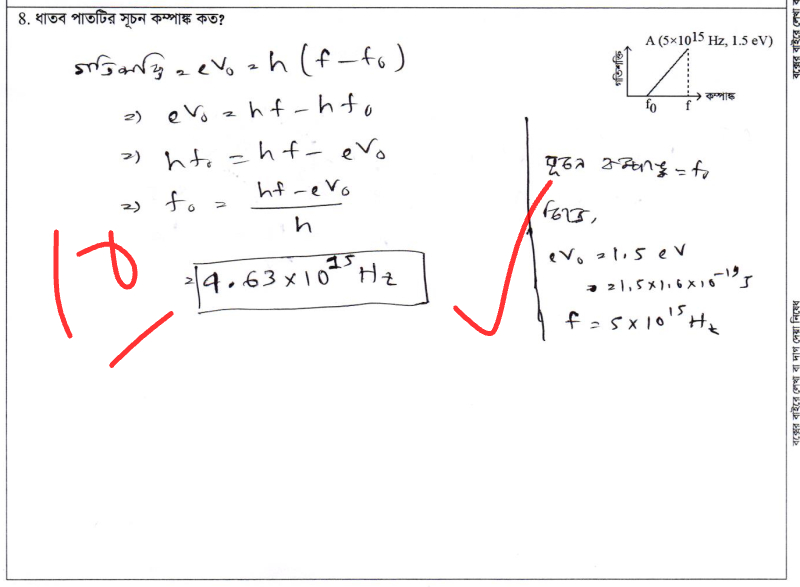 8. ধাতব পাতটির সূচন কম্পাঙ্ক কত?
A (5×10^15 Hz, 1.5 eV)
গতিশক্তি
কম্পাঙ্ক
f₀ f
গতিশক্তি = eV₀ = h (f – f₀)
⇒) eV₀ = hf – hf₀
⇒) hf₀ = hf – eV₀
⇒) f₀ = (hf – eV₀) / h
= 4.63 × 10^15 Hz
সূচন কম্পাঙ্ক = f₀
চিত্রে,
eV₀ = 1.5 eV
= 1.5 × 1.6 × 10^-19 J
f = 5 × 10^15 Hz
10
বক্সের বাইরে লেখা বা দাগ দেয়া নিষেধ
বক্সের বাইরে লেখা ব